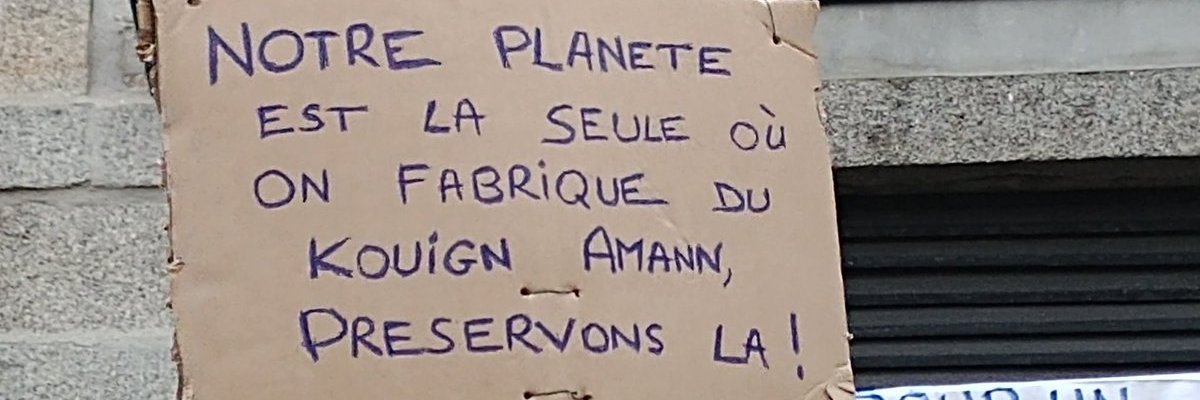 NOTRE PLANETE
EST LA SEULE OÙ
ON FABRIQUE DU
KOUIGN AMANN,
PRESERVONS LA !
POUR UN